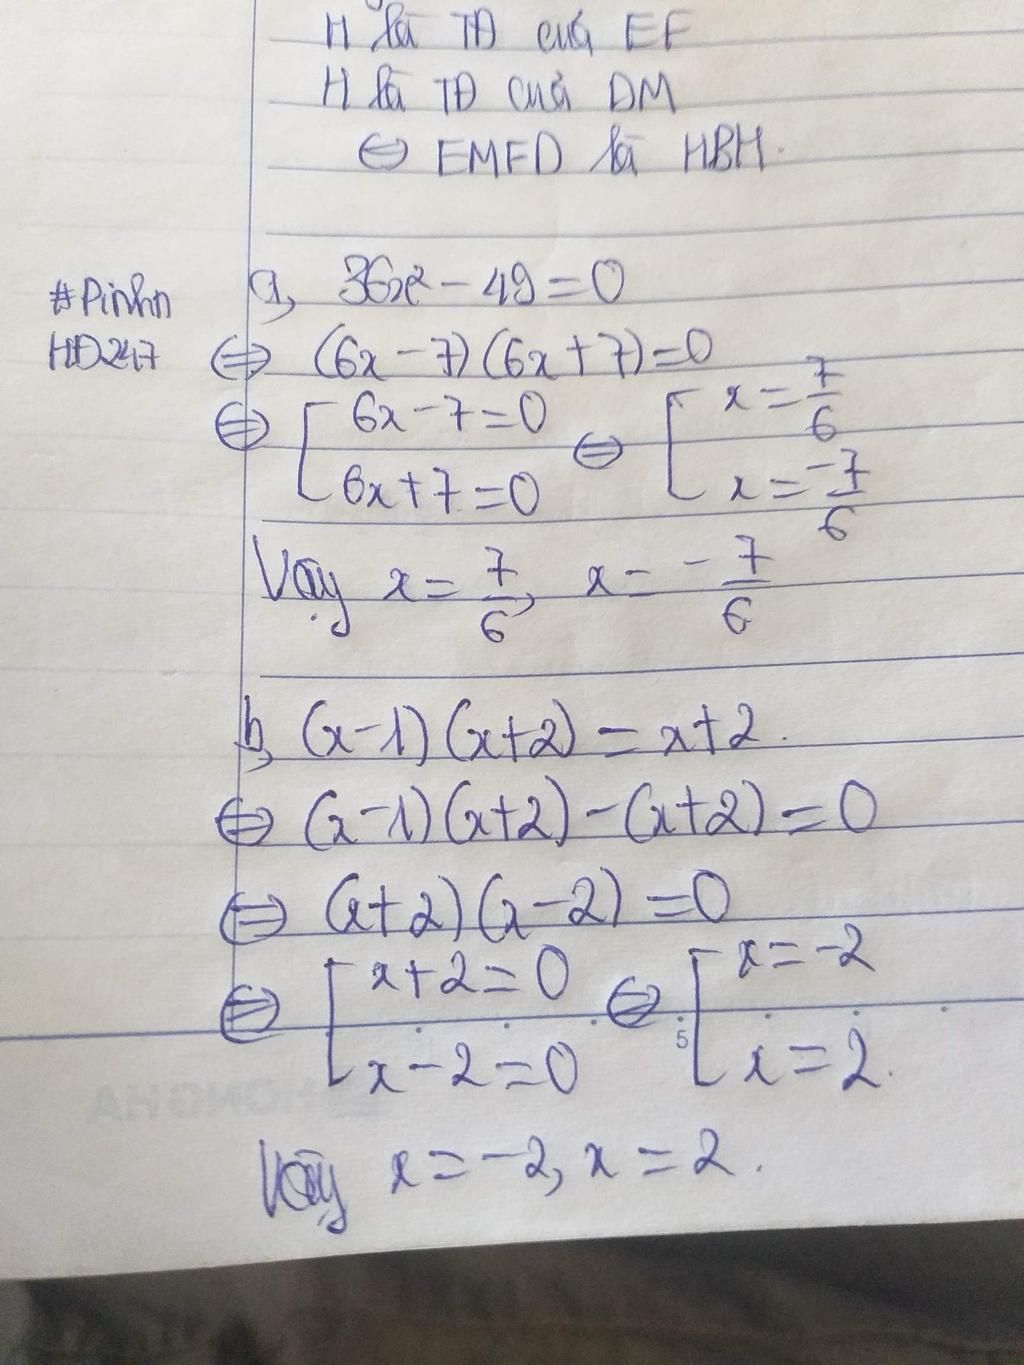 H là TĐ của EF
H là TĐ của DM
⇔ EMFD là HBH.
#Pinhn
HĐ247
a, 36x² - 49 = 0
⇔ (6x - 7)(6x + 7) = 0
⇔ [ 6x - 7 = 0 ⇔ [ x = 7/6
6x + 7 = 0 x = -7/6
Vậy x = 7/6, x = - 7/6
b, (x - 1)(x + 2) = x + 2.
⇔ (x - 1)(x + 2) - (x + 2) = 0
⇔ (x + 2)(x - 2) = 0
⇔ [ x + 2 = 0 ⇔ [ x = -2
5
x - 2 = 0 x = 2.
HONGHA
Vậy x = -2, x = 2.